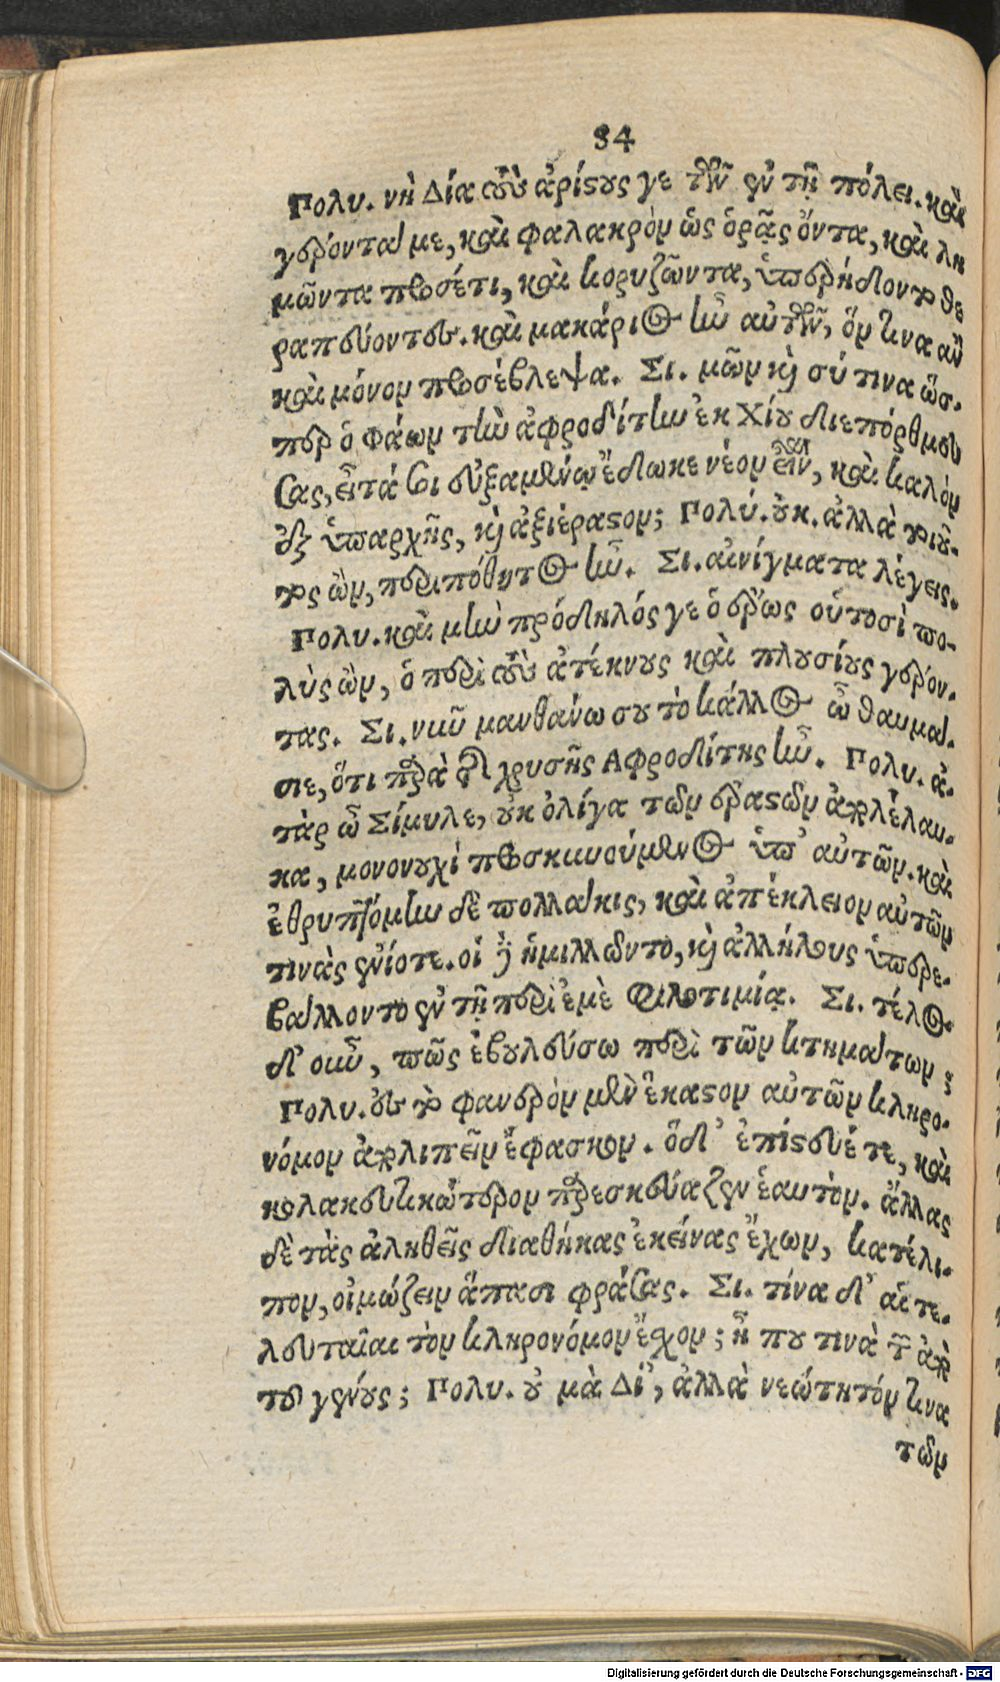 84
Πολυ. νὴ Δία τοὺς ἀρίστους γε τῶν ἐν τῇ πόλει. καὶ
γέροντά με, καὶ φαλακρὸν ὡς ὁρᾷς ὄντα, καὶ λη
μῶντα προσέτι, καὶ κορυζῶντα, ὑπερήδοντο θε
ραπεύοντες. καὶ μακάριος ἦν αὐτῶν, ὅν τινα ἂν
καὶ μόνον προσέβλεψα. Σι. μῶν καὶ σύ τινα ὥσ-
περ ὁ Φάων τὴν ἀφροδίτην ἐκ Χίου διεπόρθμευ
σας, εἶτά σοι εὐξαμένῳ ἔδωκε νέον εἶναι, καὶ καλὸν
ἐξ ὑπαρχῆς, καὶ ἀξιέραστον; Πολύ. οὐκ. ἀλλὰ τοιοῦ-
τος ὢν, περιπόθητος ἦν. Σι. αἰνίγματα λέγεις.
Πολυ. καὶ μὴν πρόδηλός γε ὁ ἔρως οὑτοσὶ πο-
λὺς ὢν, ὁ περὶ τοὺς ἀτέκνους καὶ πλουσίους γέρον-
τας. Σι. νῦν μανθάνω σου τὸ κάλλος ὦ θαυμά-
σιε, ὅτι παρὰ τῆς χρυσῆς Αφροδίτης ἦν. Πολυ. ἀ-
τὰρ ὦ Σίμυλε, οὐκ ὀλίγα τῶν ἐραστῶν ἀπολέλαυ-
κα, μονονουχὶ προσκυνούμενος ὑπ' αὐτῶν. καὶ
ἐθρυπτόμην δὲ πολλάκις, καὶ ἀπέκλειον αὐτῶν
τινὰς ἐνίοτε. οἱ δὲ ἡμιλλῶντο, καὶ ἀλλήλους ὑπερε-
βάλλοντο ἐν τῇ περὶ ἐμὲ φιλοτιμίᾳ. Σι. τέλος
δ' οὖν, πῶς ἐβουλεύσω περὶ τῶν κτημάτων;
Πολυ. ἐς τὸ φανερὸν μὲν ἕκαστον αὐτῶν κληρο-
νόμον ἀπολιπεῖν ἔφασκον. ὁ δ' ἐπίστευέ τε, καὶ
κολακευτικώτερον παρεσκεύαζεν ἑαυτὸν. ἄλλας
δὲ τὰς ἀληθεῖς διαθήκας ἐκείνας ἔχων, κατέλι-
πον, οἰμώζειν ἅπασι φράσας. Σι. τίνα δ' αἱ τε-
λευταῖαι τὸν κληρονόμον ἔσχον; ἦ που τινὰ τῶν ἀπὸ
τοῦ γένους; Πολυ. οὐ μὰ Δί', ἀλλὰ νεώνητόν τινα
τῶν
Digitalisierung gefördert durch die Deutsche Forschungsgemeinschaft - DFG